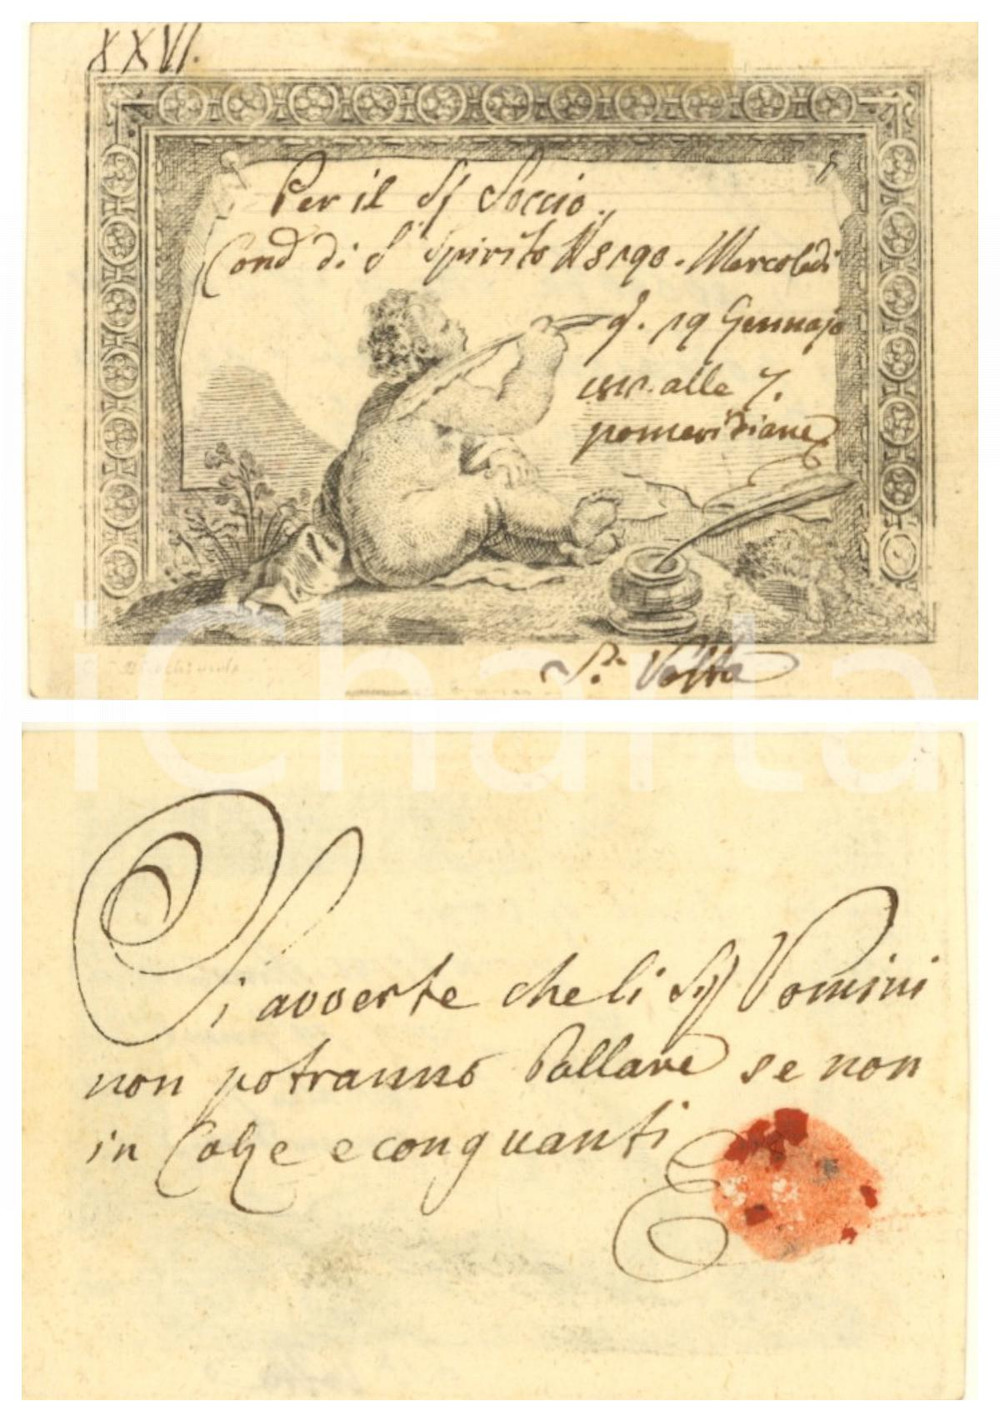 XXVI.
Per il Sj Soccio.
Cond di S. Spirito N 5190. Mercoledì
19 Gennajo
alle 7.
pomeridiane
Volta
iCharta
Si avverte che li Sjj Uomini
non potranno Ballare se non
in Calze e con guanti